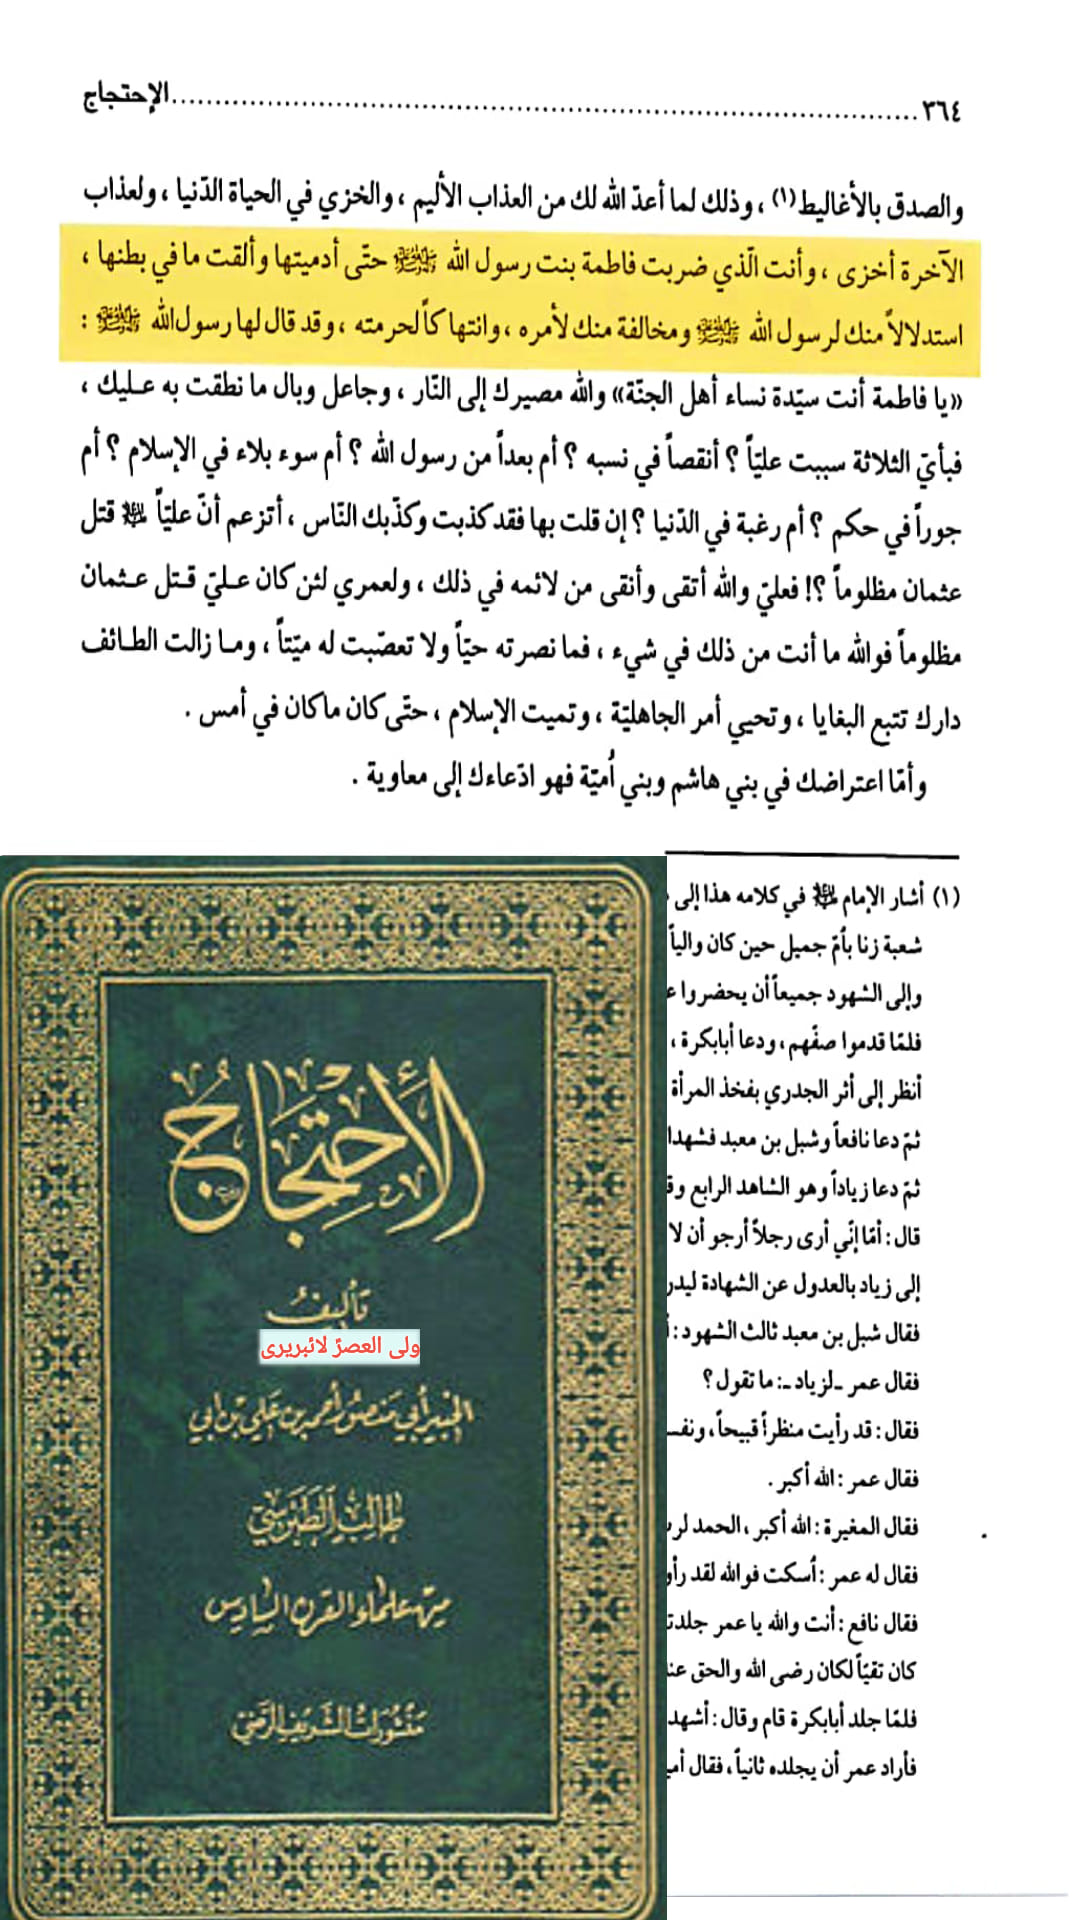 ٣٦٤ ........................................ الإحتجاج
والصدق بالأغاليط(١) ، وذلك لما أعدّ الله لك من العذاب الأليم ، والخزي في الحياة الدّنيا ، ولعذاب
الآخرة أخزى ، وأنت الّذي ضربت فاطمة بنت رسول الله ﷺ حتّى أدميتها وألقت ما في بطنها ،
استدلالاً منك لرسول الله ﷺ ومخالفة منك لأمره ، وانتهاكاً لحرمته ، وقد قال لها رسول الله ﷺ :
«يا فاطمة أنت سيّدة نساء أهل الجنّة» والله مصيرك إلى النّار ، وجاعل وبال ما نطقت به عليك ،
فبأيّ الثلاثة سببت عليّاً ؟ أنقصاً في نسبه ؟ أم بعداً من رسول الله ؟ أم سوء بلاء في الإسلام ؟ أم
جوراً في حكم ؟ أم رغبة في الدّنيا ؟ إن قلت بها فقد كذبت وكذّبك النّاس ، أتزعم أنّ عليّاً قتل
عثمان مظلوماً ؟! فعليّ والله أتقى وأنقى من لائمه في ذلك ، ولعمري لئن كان عليّ قتل عثمان
مظلوماً فوالله ما أنت من ذلك في شيء ، فما نصرته حيّاً ولا تعصّبت له ميّتاً ، وما زالت الطائف
دارك تتبع البغايا ، وتحيي أمر الجاهليّة ، وتميت الإسلام ، حتّى كان ما كان في أمس .
وأمّا اعتراضك في بني هاشم وبني أُميّة فهو ادّعاءك إلى معاوية .
(١) أشار الإمام في كلامه هذا إلى
شعبة زنا بأمّ جميل حين كان والياً
وإلى الشهود جميعاً أن يحضروا
فلمّا قدموا صفّهم ، ودعا أبابكرة ،
أنظر إلى أثر الجدري بفخذ المرأة
ثمّ دعا نافعاً وشبل بن معبد فشهدا
ثمّ دعا زياداً وهو الشاهد الرابع
قال : أمّا إنّي أرى رجلاً أرجو أن لا
إلى زياد بالعدول عن الشهادة
فقال شبل بن معبد ثالث الشهود :
فقال عمر ـ لزياد ـ : ما تقول ؟
فقال : قد رأيت منظراً قبيحاً ،
فقال عمر : الله أكبر .
فقال المغيرة : الله أكبر ، الحمد
فقال له عمر : اُسكت فوالله لقد
فقال نافع : أنت والله يا عمر
كان تقيّاً لكان رضى الله والحق
فلمّا جلد أبابكرة قام وقال : أشهد
فأراد عمر أن يجلده ثانياً ، فقال
الأحتجاج
تأليف
ولی العصرؑ لائبریری
أبي منصور أحمد بن علي بن أبي
طالب الطبرسي
من علماء القرن السادس
منشورات الشريف الرضي